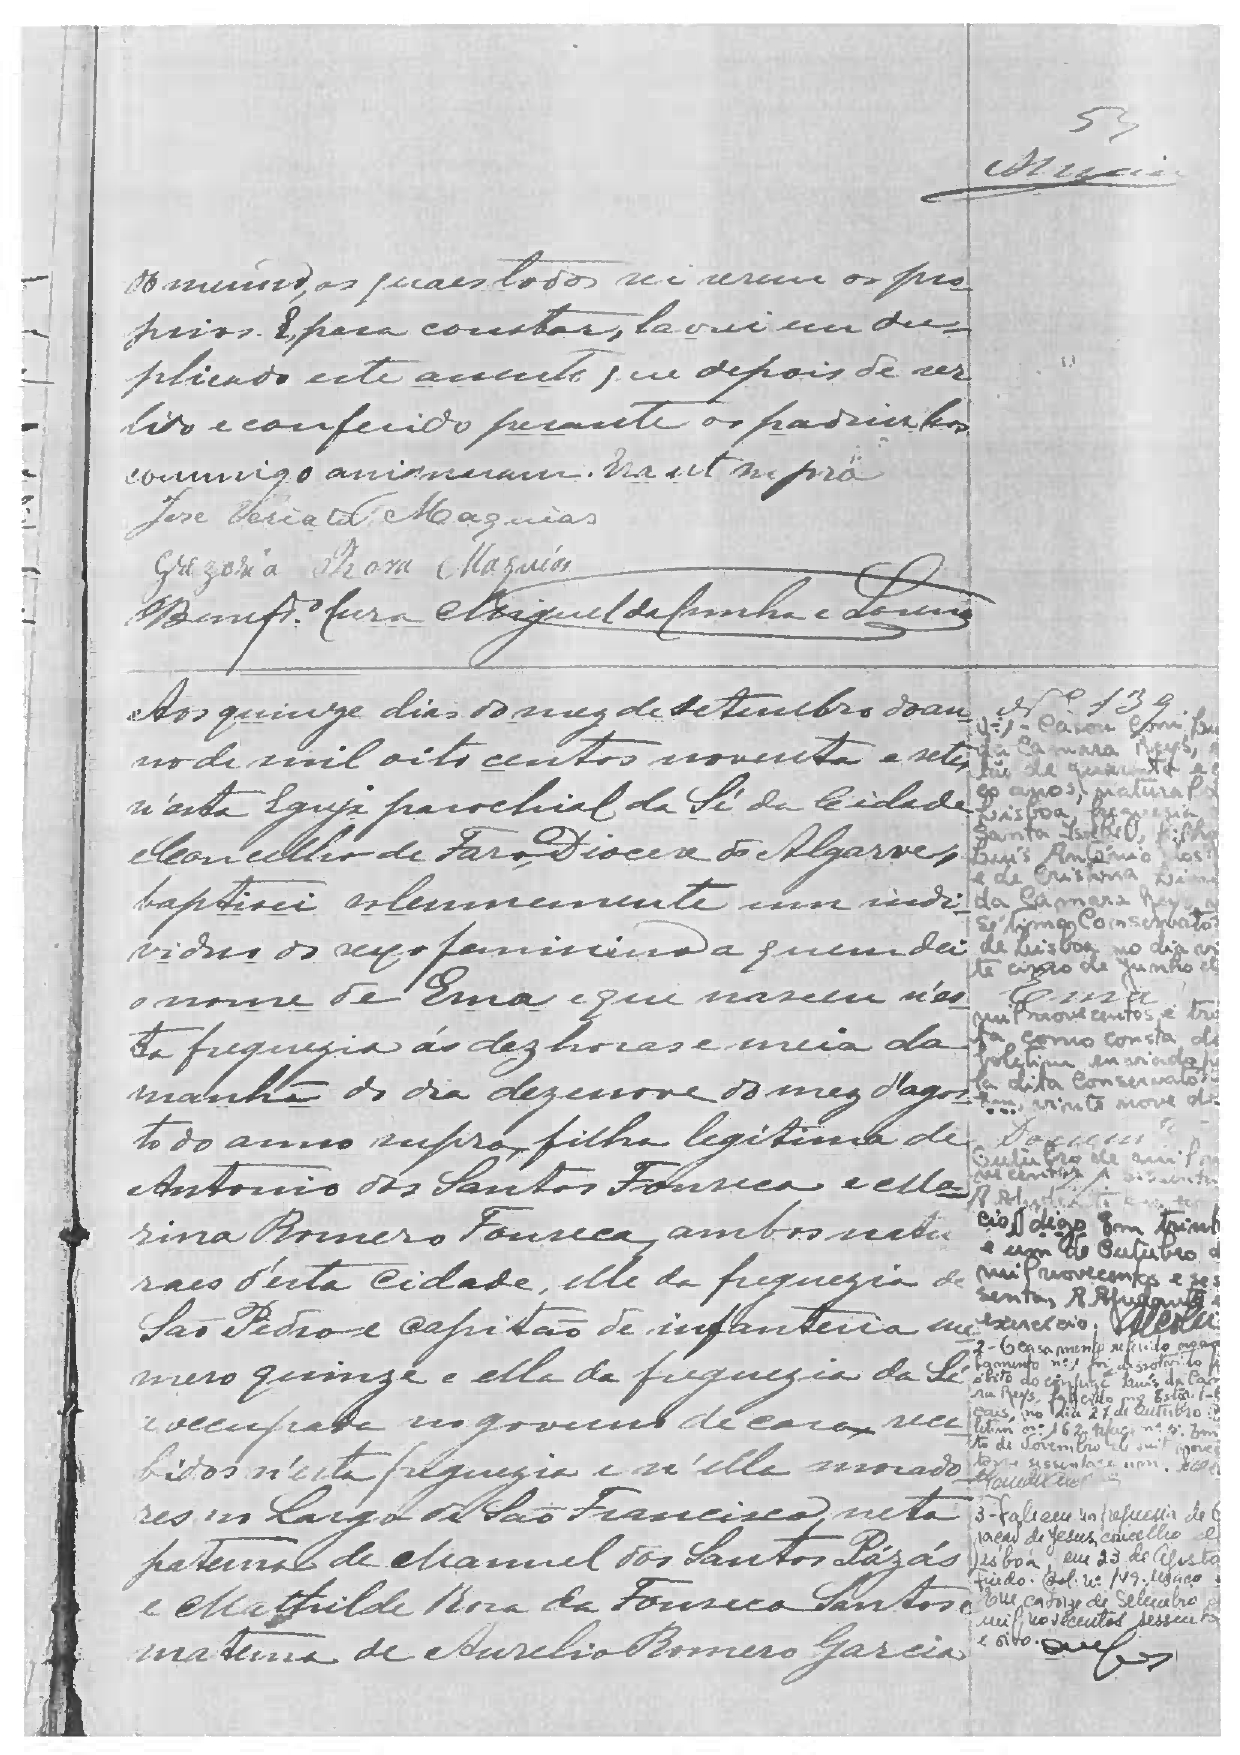 do menino, os quaes todos sei serem os pro-
prios. E, para constar, lavrei em du-
plicado este assento, que depois de ser
lido e conferido perante os padrinhos
commigo assignaram. Era ut supra
José Maquias
Gregoria Maquias
Benefd.º Cura Miguel da Cunha e
Aos quinze dias do mez de setembro do an-
no de mil oito centos noventa e sete,
n'esta Egreja parochial da Sé da Cidade
e Concelho de Faro, Diocese do Algarve,
baptisei solemnemente um indi-
viduo do sexo feminino a quem dei
o nome de Ema, e que nasceu n'es-
ta freguezia ás dez horas e meia da
manhã do dia dezenove do mez d'agos-
to do anno supra, filha legitima de
Antonio dos Santos Fonseca e Ma-
rina Romero Fonseca, ambos natu-
raes d'esta cidade, elle da freguezia de
São Pedro e capitão de infanteria nu-
mero quinze e ella da freguezia da Sé
e occupada no governo de casa, rece-
bidos n'esta freguezia e n'ella morado-
res no Largo de São Francisco, neta
paterna de Manuel dos Santos Pázás
e Mathilde Roza da Fonseca Santos e
materna de Aurelio Romero Garcia
Nº 139
Nº 1 - Casou com Luis
da Camara Reys,
de quarenta e
co anos, natural
Lisboa, freguesia
Santa Isabel, filho
Luís António dos
e de Cristina
da Câmara Reys,
Sétima Conservató
de Lisboa, no dia vin
te cinco de Junho de
Ema
mil novecentos e trin
ta, como consta do
boletim enviado pe
la dita Conservató
vinte nove de
Outubro de mil no
vecentos e
cio, digo Em trinta
e um de Outubro de
mil novecentos e ses
senta, O Ajudante em
exercício.
2 - O casamento referido no aver
bamento nº 1 foi dissolvido p
óbito do cônjuge Luís da Câma
ra Reys, falecido no Estoril
cais, no dia 27 de Outubro
letim nº 162. Maço nº 5. Em
to de Novembro de mil nove
centos e sessenta e um.
3 - Faleceu na freguesia de C
ração de Jesus, concelho de
Lisboa, em 23 de Agosto
findo. Bol. nº 149. Maço
Em catorze de Setembro de
mil novecentos sessenta
e oito.